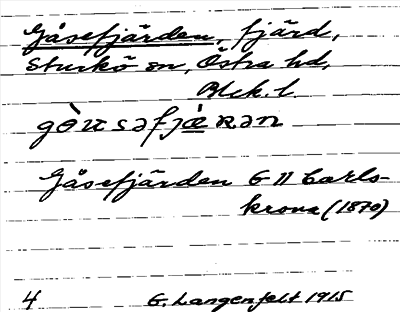 Gåsefjärden, fjärd,
Sturkö sn, Östra hd,
Blek. l.
Gåsefjärden G II Carls-
krona (1870)
4 G. Langenfelt 1915